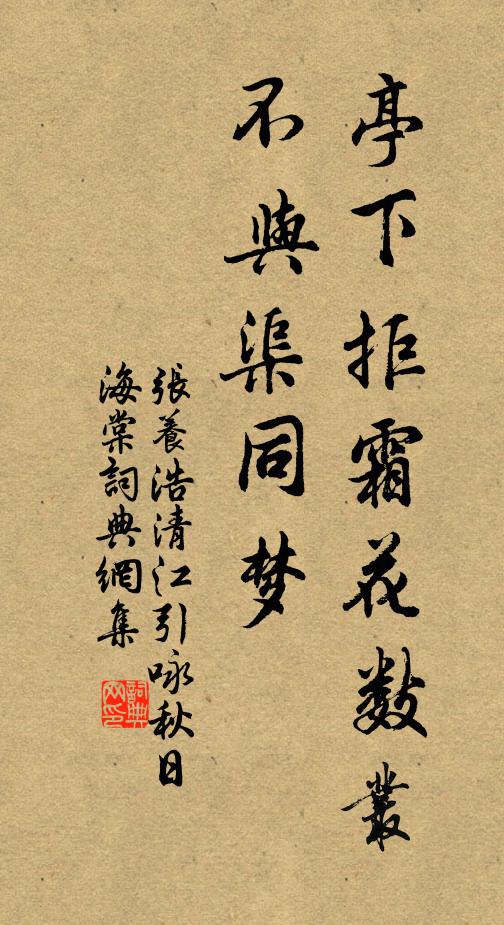 亭下拒霜花数叢
不與渠同梦
張養浩清江引咏秋日
海棠詞典網集
詞典
网印